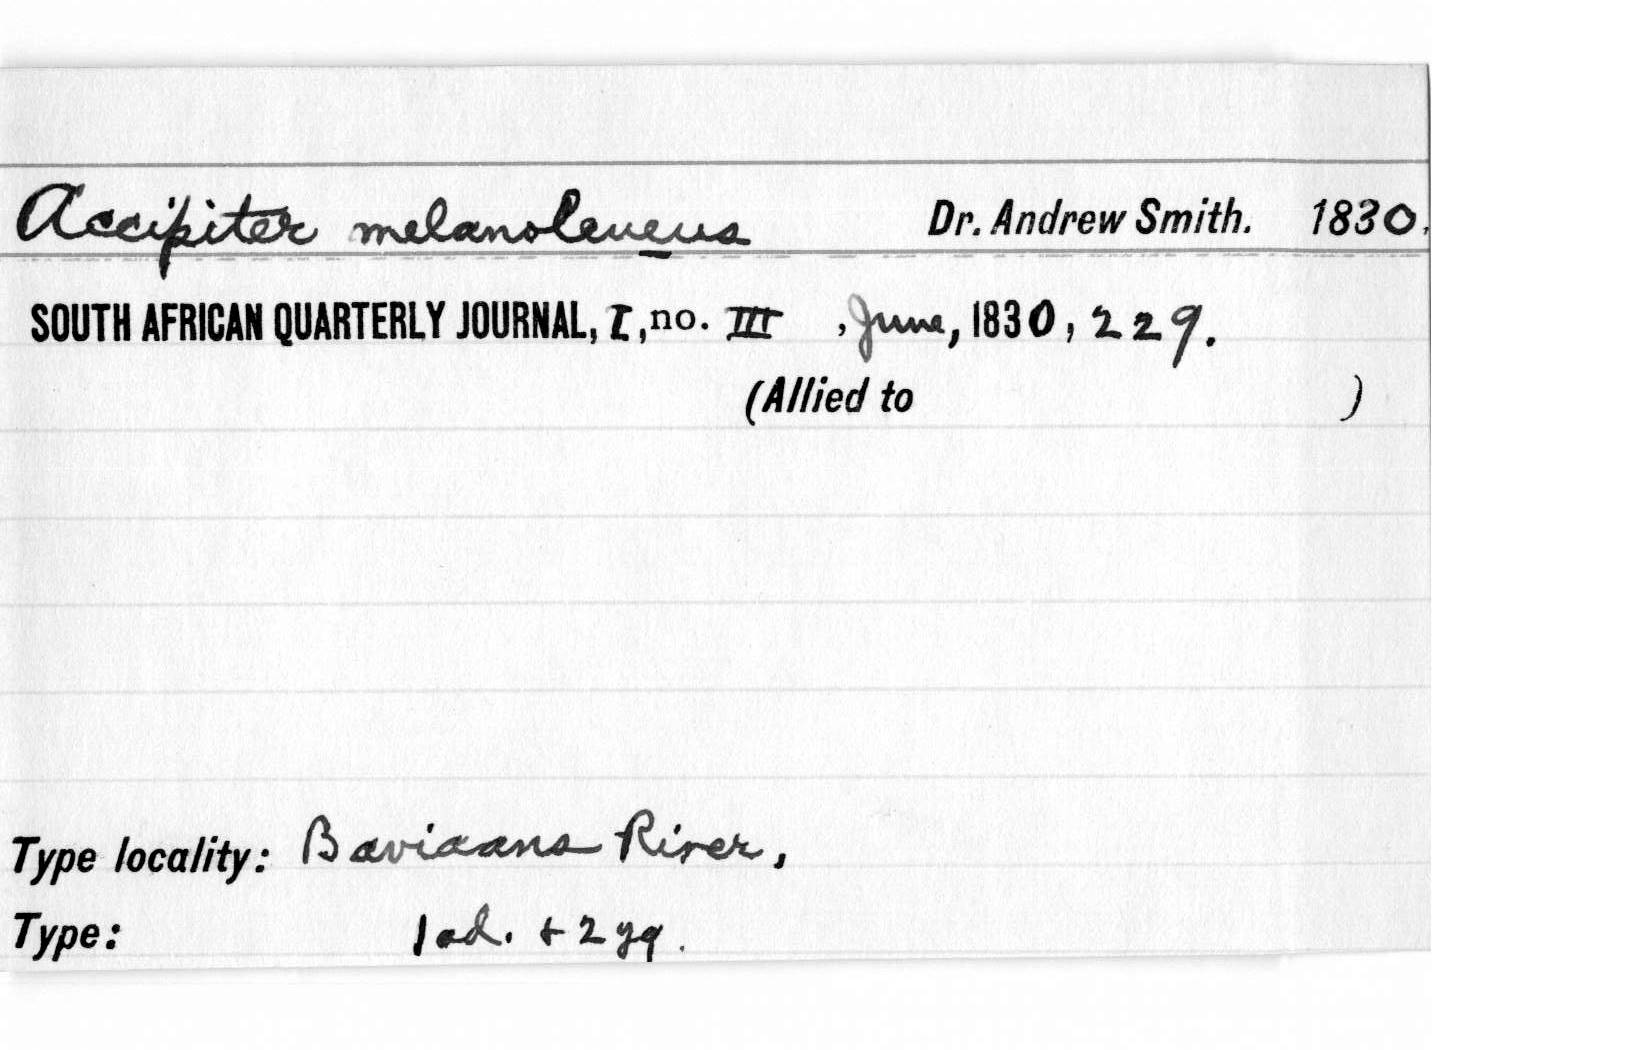 Accipiter melanoleucus Dr. Andrew Smith. 1830.
SOUTH AFRICAN QUARTERLY JOURNAL, I, no. III , June, 1830, 229.
(Allied to )
Type locality: Baviaans River,
Type: 1 ad. + 2 yg.